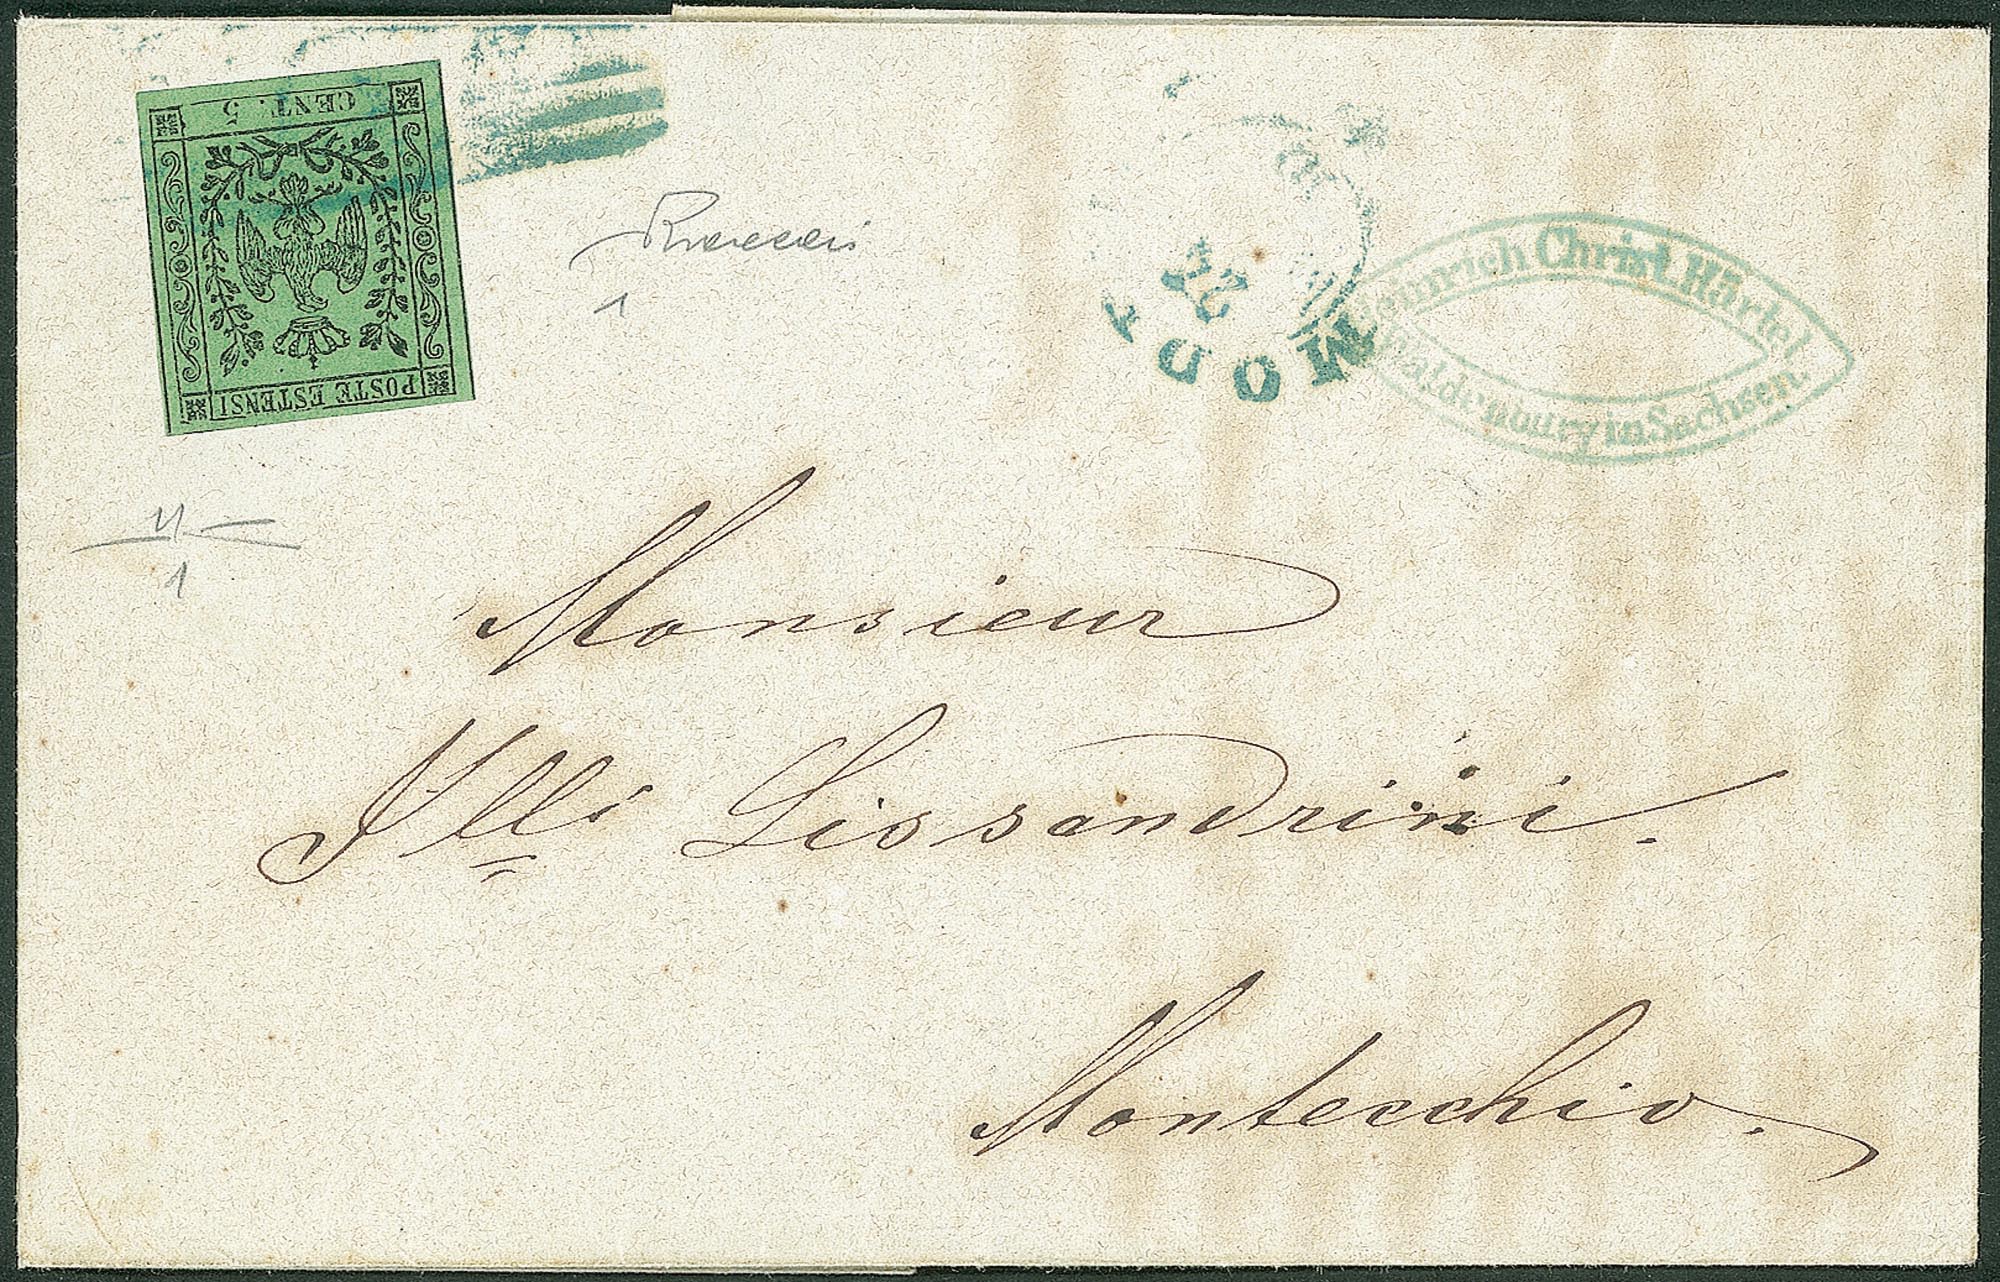 CENT. 5
POSTE ESTENSI
MODE
24
Heinrich Christ. Härtel
Waldenburg in Sachsen.
1
1
Monsieur
Flli Lissandrini.
Montecchio.